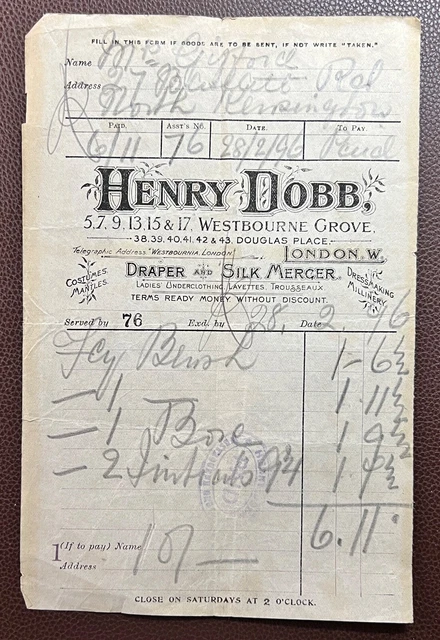 FILL IN THIS FORM IF GOODS ARE TO BE SENT, IF NOT WRITE "TAKEN."
Name Mrs Gifford
Address 27 Rd
North Kensington
PAID. ASST'S No. DATE. TO PAY.
6/11 76 28/2/96 Paid
HENRY DOBB,
5.7.9.13.15 & 17, WESTBOURNE GROVE,
38.39.40.41.42 & 43, DOUGLAS PLACE.
Telegraphic Address "WESTBOURNIA, LONDON"
LONDON. W.
COSTUMES. MANTLES.
DRAPER AND SILK MERCER.
DRESSMAKING MILLINERY.
LADIES' UNDERCLOTHING, LAYETTES, TROUSSEAUX
TERMS READY MONEY WITHOUT DISCOUNT.
Served by 76 Exd. by 28, Date 2. 96
Fcy 1-6½
— 1 1.11½
— 1 1.9½
— 2 9¾ 1.7½
6.11.
1 (If to pay) Name 10/ —
Address
CLOSE ON SATURDAYS AT 2 O'CLOCK.